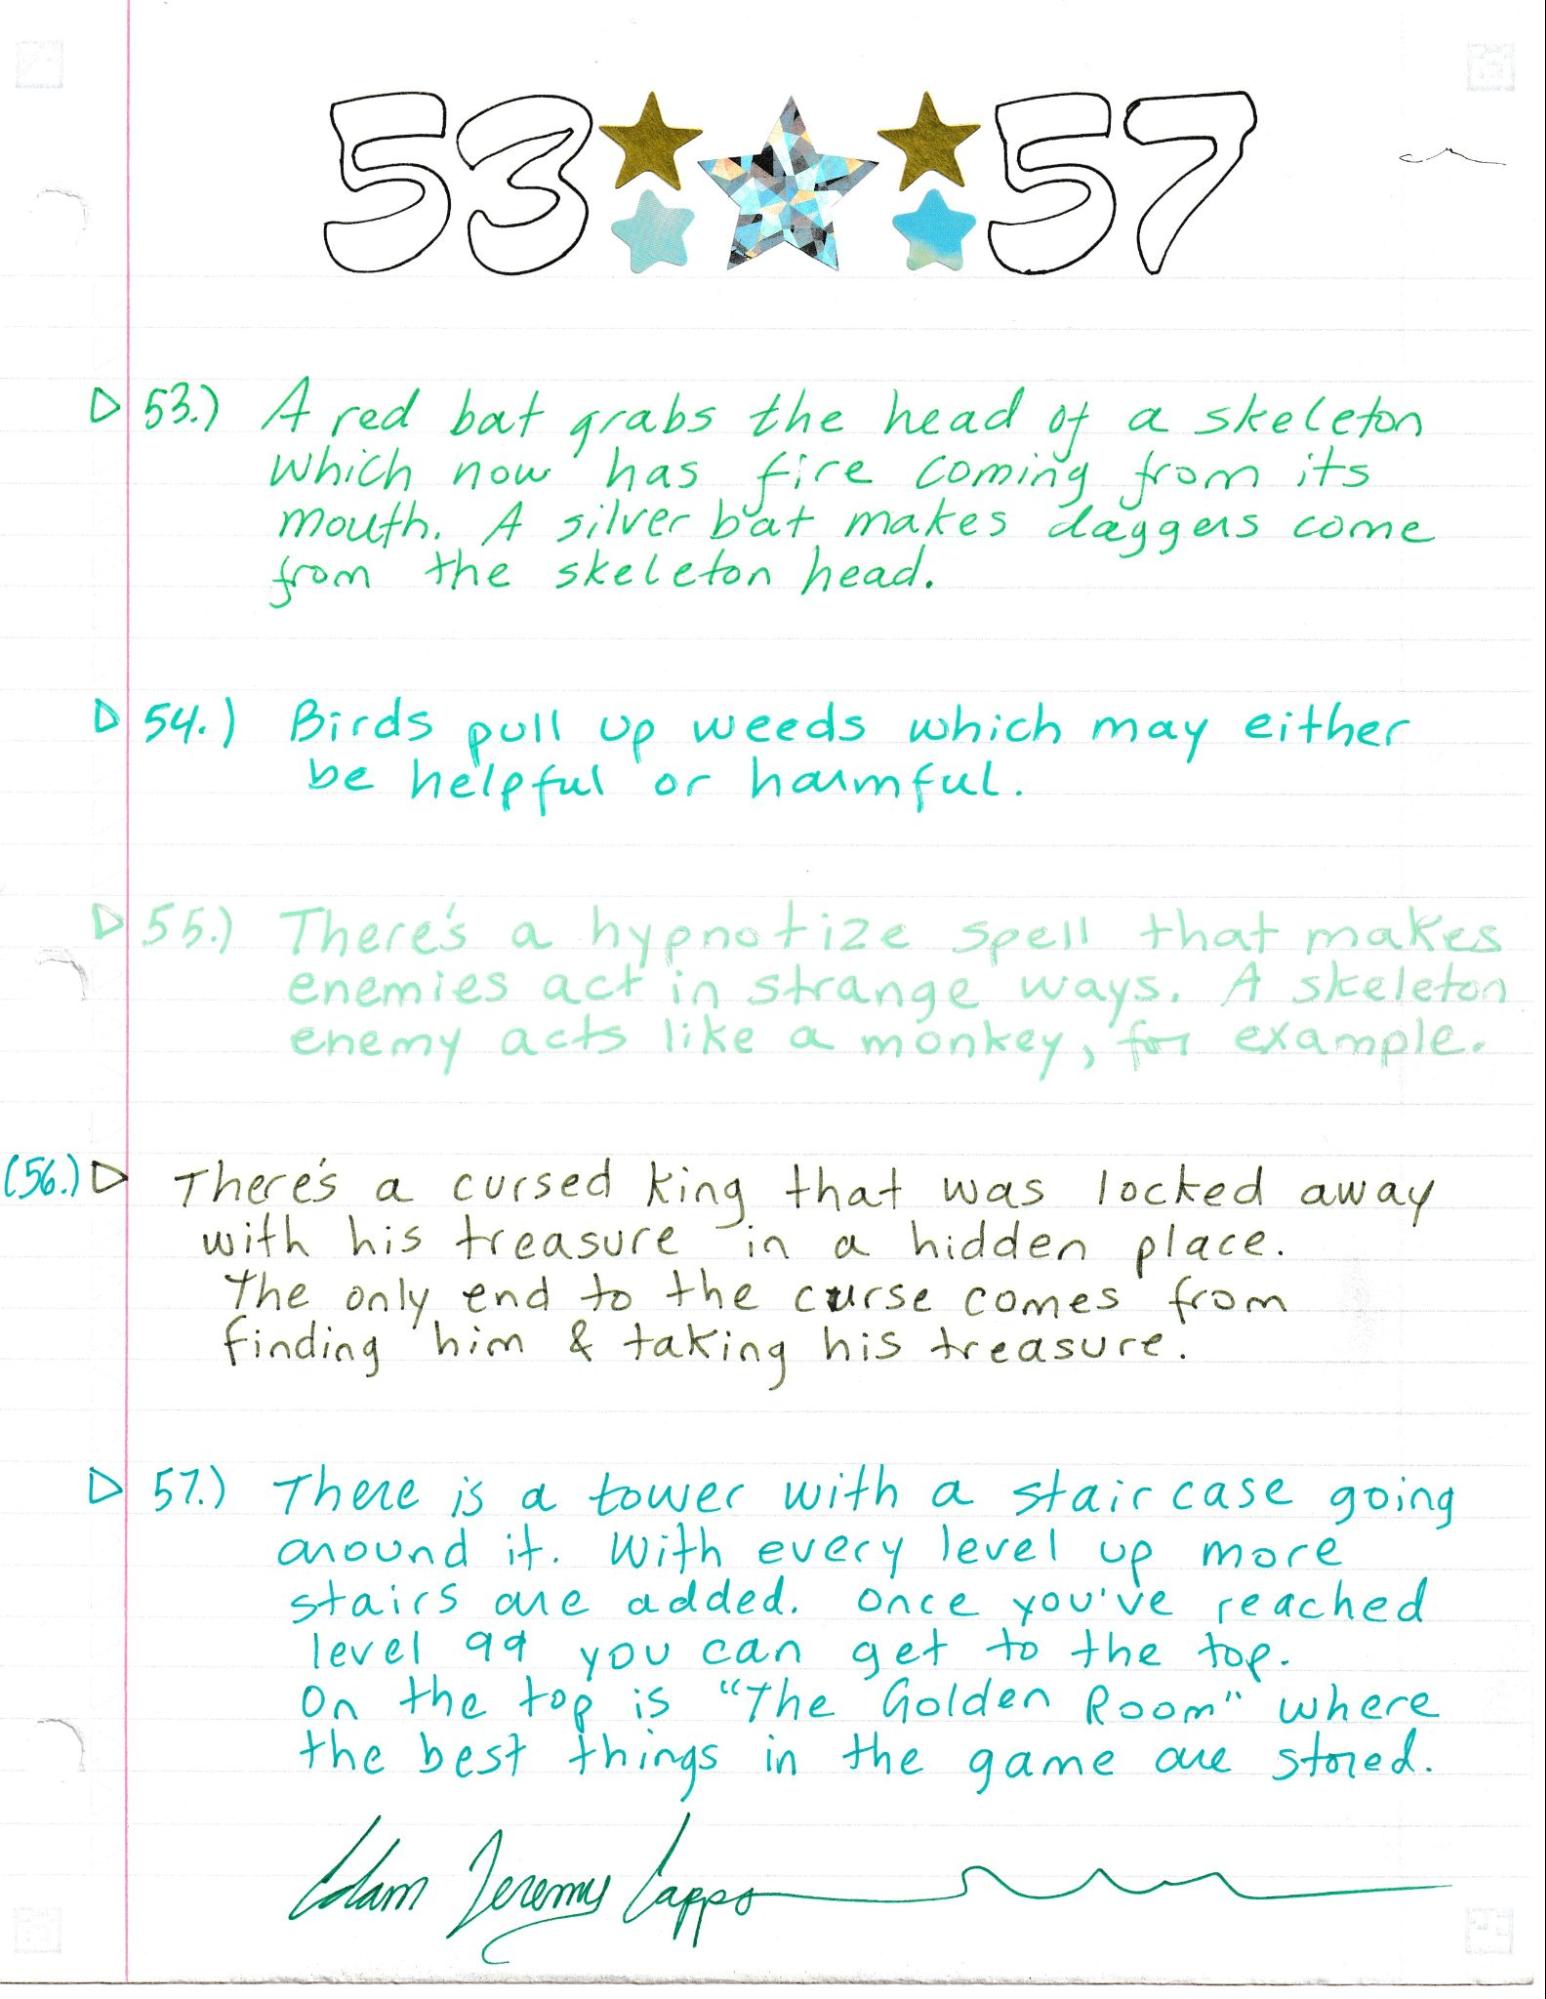 53 57
▷ 53.) A red bat grabs the head of a skeleton
which now has fire coming from its
mouth. A silver bat makes daggers come
from the skeleton head.
▷ 54.) Birds pull up weeds which may either
be helpful or harmful.
▷ 55.) There's a hypnotize spell that makes
enemies act in strange ways. A skeleton
enemy acts like a monkey, for example.
(56.) ▷ There's a cursed king that was locked away
with his treasure in a hidden place.
The only end to the curse comes from
finding him & taking his treasure.
▷ 57.) There is a tower with a staircase going
around it. With every level up more
stairs are added. Once you've reached
level 99 you can get to the top.
On the top is "The Golden Room" where
the best things in the game are stored.
Adam Jeremy Capps